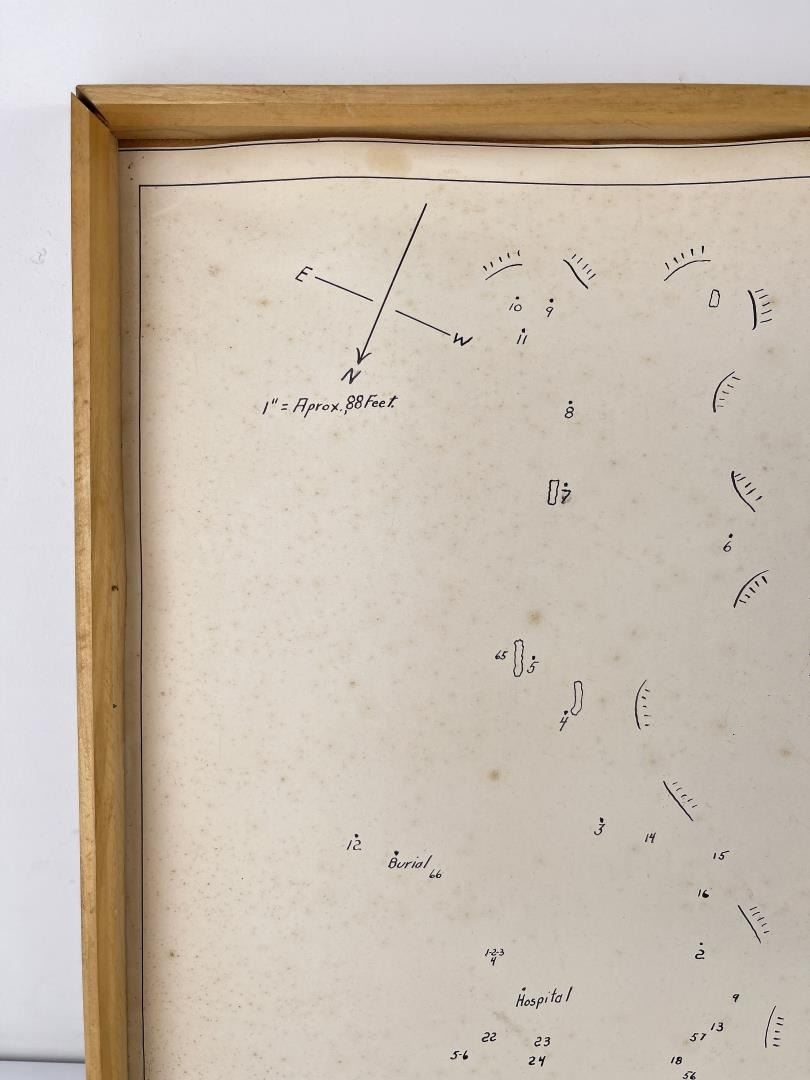 E
W
N
1" = Aprox., 88 Feet.
10 9
11
8
7
6
65 5
4
3 14
12
15
Burial 66
16
1-2-3
4
2
Hospital
9
13
22 23 57
5-6 24 18
56